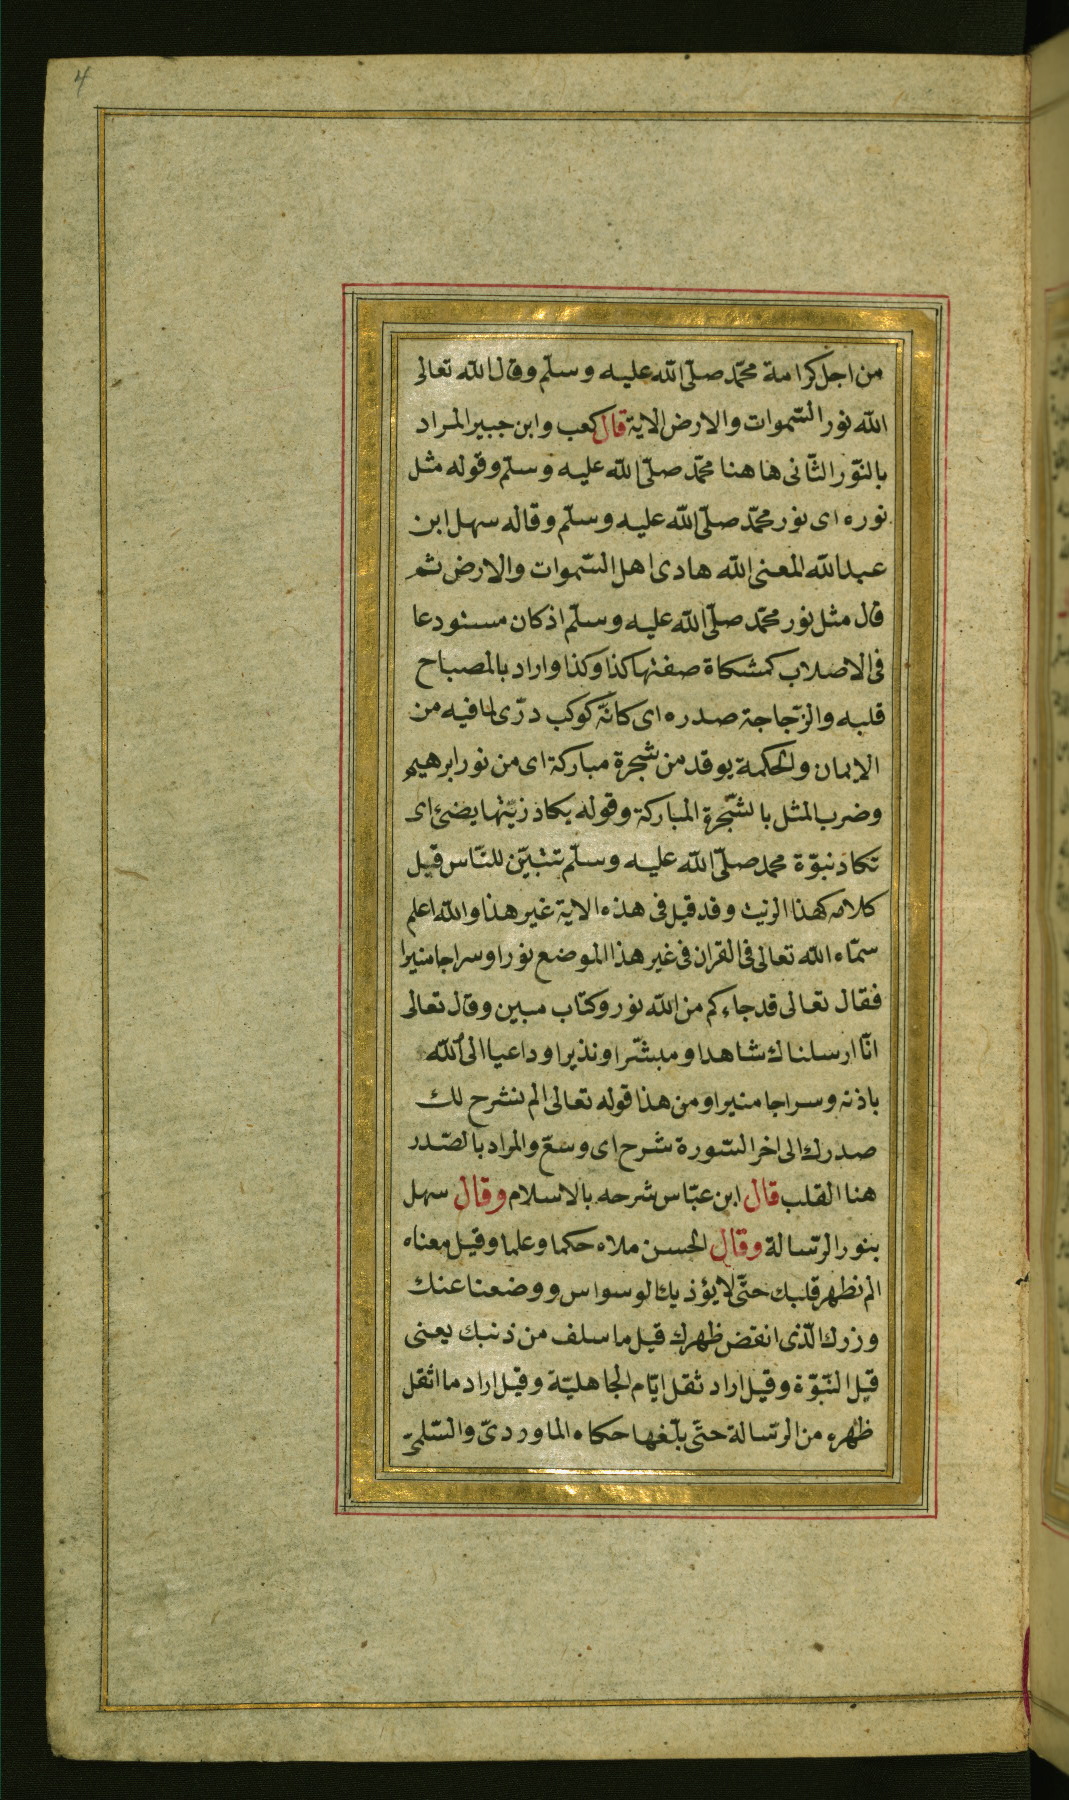 4
من اجل كرامة محمّد صلّى الله عليه وسلّم وقال الله تعالى
الله نور السّموات والارض الاية قال كعب وابن جبير المراد
بالنّور الثّانى هاهنا محمّد صلّى الله عليه وسلّم وقوله مثل
نوره اى نور محمّد صلّى الله عليه وسلّم وقاله سهل ابن
عبدالله المعنى الله هادى اهل السّموات والارض ثم
قال مثل نور محمّد صلّى الله عليه وسلّم اذ كان مستودعا
فى الاصلاب كمشكاة صفتها كذا وكذا واراد بالمصباح
قلبه والزّجاجة صدره اى كانّه كوكب درّى لما فيه من
الايمان والحكمة يوقد من شجرة مباركة اى من نور ابرهيم
وضرب المثل بالشّجرة المباركة وقوله يكاد زيتها يضئ اى
تكاد نبوّة محمد صلّى الله عليه وسلّم تتبيّن للنّاس قبل
كلامه كهذا الزيت وقد قيل فى هذه الاية غير هذا والله اعلم
سمّاه الله تعالى فى القران فى غير هذا الموضع نورا وسراجا منيرا
فقال تعالى قد جاءكم من الله نور وكتاب مبين وقال تعالى
انّا ارسلناك شاهدا ومبشّرا ونذيرا وداعيا الى الله
باذنه وسراجا منيرا ومن هذا قوله تعالى الم نشرح لك
صدرك الى اخر السّورة شرح اى وسّع والمراد بالصّدر
هنا القلب قال ابن عبّاس شرحه بالاسلام وقال سهل
بنور الرّسالة وقال الحسن ملاه حكما وعلما وقيل معناه
الم نطهر قلبك حتّى لا يؤذيك الوسواس ووضعنا عنك
وزرك الّذى انقض ظهرك قيل ما سلف من ذنبك يعنى
قبل النّبوّة وقيل اراد ثقل ايّام الجاهليّة وقيل اراد ما اثقل
ظهره من الرّسالة حتّى بلّغها حكاه الماوردىّ والسّلمىّ